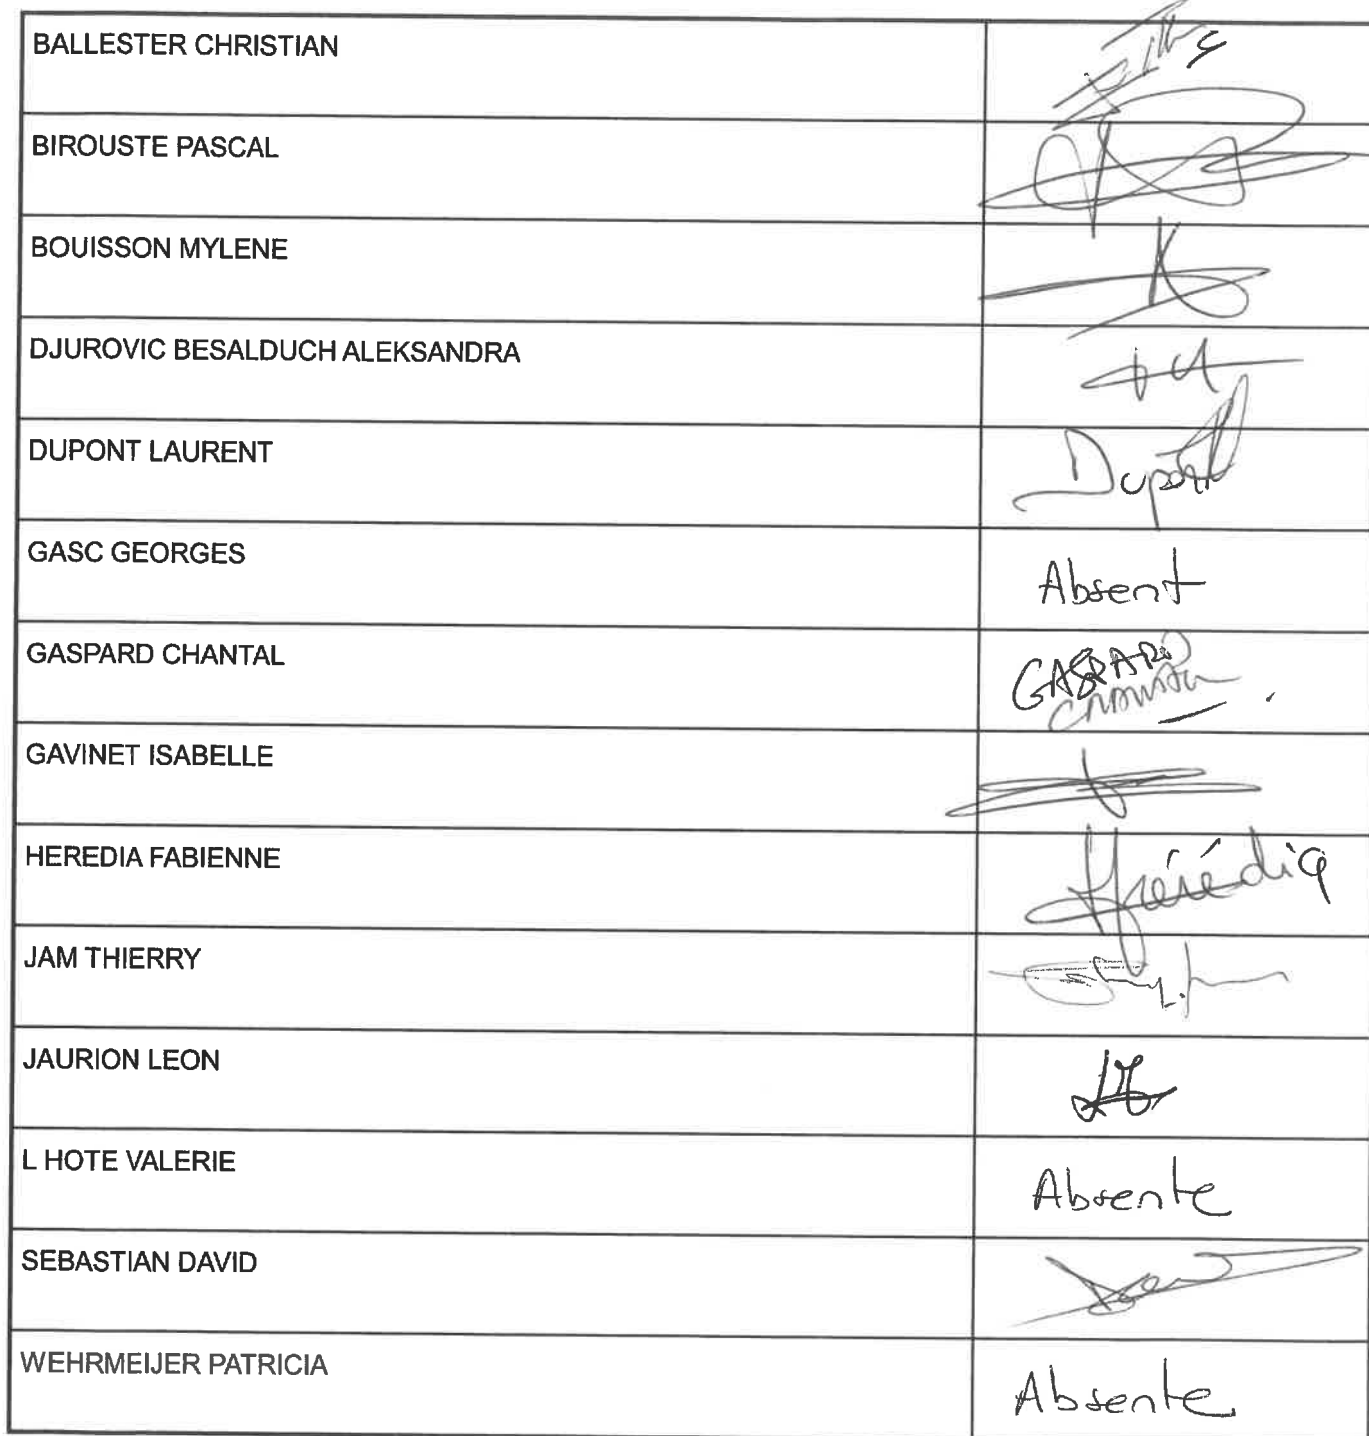 BALLESTER CHRISTIAN
BIROUSTE PASCAL
BOUISSON MYLENE
DJUROVIC BESALDUCH ALEKSANDRA
DUPONT LAURENT
Dupont
GASC GEORGES
Absent
GASPARD CHANTAL
GASPARD
CHANTAL
GAVINET ISABELLE
HEREDIA FABIENNE
Hérédia
JAM THIERRY
JAURION LEON
L HOTE VALERIE
Absente
SEBASTIAN DAVID
WEHRMEIJER PATRICIA
Absente